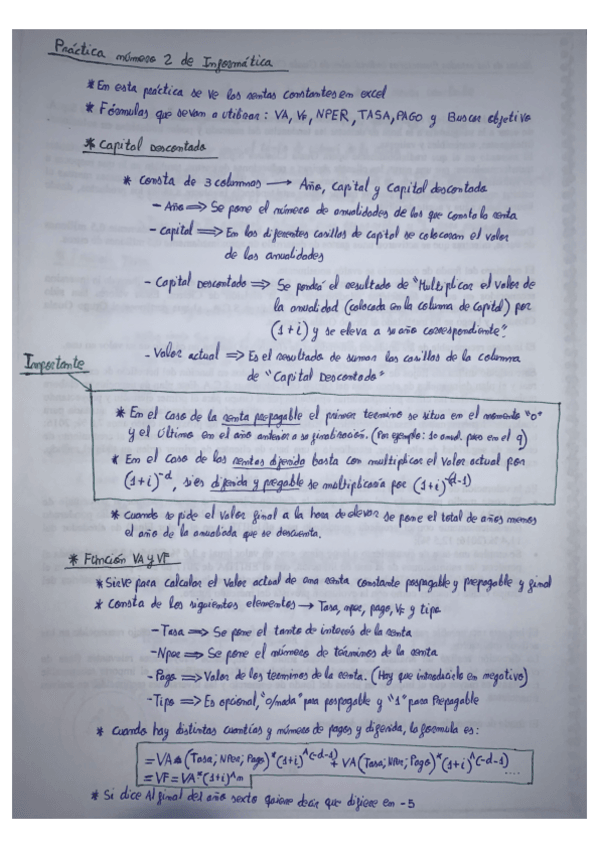 Práctica número 2 de Informática
* En esta práctica se ve las rentas constantes en excel
* Fórmulas que se van a utilizar: VA, VF, NPER, TASA, PAGO y Buscar objetivo
* Capital Descontado
* Consta de 3 columnas → Año, Capital y Capital descontado
- Año ⇒ Se pone el número de anualidades de las que consta la renta
- Capital ⇒ En las diferentes casillas de capital se colocaran el valor
de las anualidades
- Capital Descontado ⇒ Se pondrá el resultado de "Multiplicar el valor de
la anualidad (colocada en la columna de Capital) por
(1+i) y se eleva a su año correspondiente"
- Valor actual ⇒ Es el resultado de sumar las casillas de la columna
de "Capital Descontado"
Importante
* En el caso de la renta prepagable el primer termino se situa en el momento "0"
y el último en el año anterior a su finalización. (Por ejemplo: 10 anud. pues en el 9)
* En el caso de las rentas diferida basta con multiplicar el Valor actual por
(1+i)^-d, si es diferida y pregable se multiplicaría por (1+i)^(-d-1)
* Cuando se pide el Valor final a la hora de elevar se pone el total de años menos
el año de la anualidad que se descuenta.
* Función VA y VF
* Sirve para calcular el Valor actual de una renta constante pospagable y prepagable y final
* Consta de los siguientes elementos → Tasa, nper, pago, VF y tipo
- Tasa ⇒ Se pone el tanto de interés de la renta
- Nper ⇒ Se pone el número de términos de la renta
- Pago ⇒ Valor de los terminos de la renta. (Hay que introducirlo en negativo)
- Tipo ⇒ Es opcional, "0/nada" para pospagable y "1" para Prepagable
* Cuando hay distintas cuantías y número de pagos y diferida, la formula es:
= VA (Tasa; NPer; Pago)*(1+i)^(-d-1) + VA (Tasa; NPer; Pago)*(1+i)^(-d-1) ....
= VF = VA*(1+i)^n
* Si dice Al final del año sexto quiere decir que difiere en -5